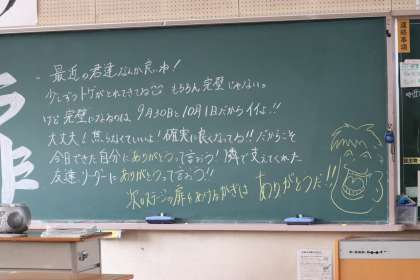 最近の君達なんか良いね！
少しずつトゲがとれてきてね もちろん完璧じゃない。
けど完璧になるのは9月30日と10月1日だからイイよ!!
大丈夫！焦らなくていいよ！確実に良くなってる!!だからこそ
今日できた自分にありがとうって言おう！隣で支えてくれた
友達、リーダーにありがとうって言おう!!
次のステージの扉をあけるかぎは ありがとうだ!!